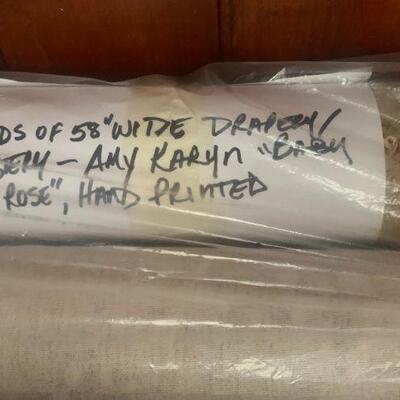 DS OF 58" WIDE DRAPERY/
STERY - AMY KARYN "BABY
ROSE", HAND PRINTED